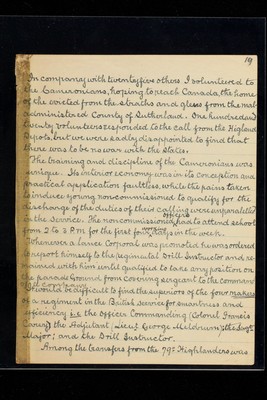 19
In company with twentyfive others I volunteered to
the Cameronians, hoping to reach Canada, the home
of the evicted from the straths and glens from the mal-
administered County of Sutherland. One hundred and
twenty volunteers responded to the call from the Highland
Depots, but we were sadly disappointed to find that
there was to be no war with the States.
The training and discipline of the Cameronians was
unique. Its interior economy was in its conception and
practical application faultless, while the pains taken
to induce young non-commissioned to qualify for the
discharge of the duties of their calling were unparalleled
officers
in the Service. The non commissioned had to attend school
from 2 to 3 P.M. for the first four days in the week.
Whenever a lance Corporal was promoted he was ordered
to report himself to the regimental Drill Instructor and re-
mained with him until qualified to take any position on
the parade Ground, from covering sergeant to the company
It would be difficult to find the superiors of the four makers
of a regiment in the British Service for smartness and
efficiency i.e. the Officer Commanding (Colonel Francis
Carey) the Adjutant, Lieut. George Meldrum, the Sergt
Major; and the Drill Instructor.
Among the transfers from the 79th Highlanders was